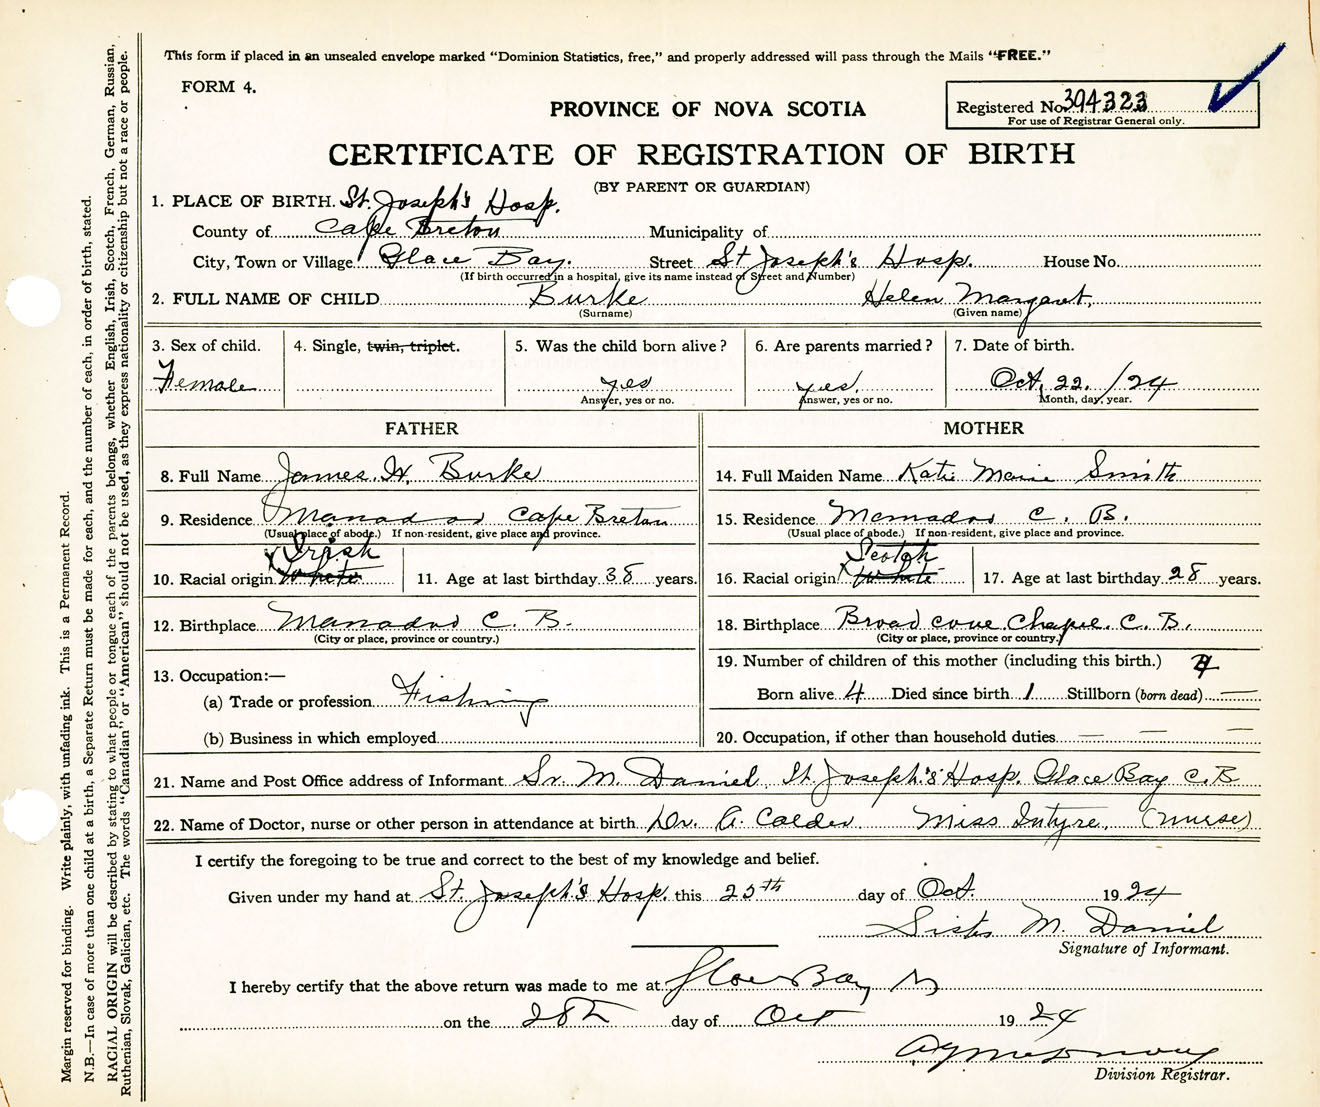 This form if placed in an unsealed envelope marked "Dominion Statistics, free," and properly addressed will pass through the Mails "FREE."
FORM 4.
PROVINCE OF NOVA SCOTIA
Registered No. 394323
For use of Registrar General only.
CERTIFICATE OF REGISTRATION OF BIRTH
(BY PARENT OR GUARDIAN)
1. PLACE OF BIRTH. St. Joseph's Hosp.
County of Cape Breton Municipality of
City, Town or Village Glace Bay. Street St Joseph's Hosp. House No.
(If birth occurred in a hospital, give its name instead of Street and Number)
2. FULL NAME OF CHILD Burke Helen Margaret.
(Surname) (Given name)
3. Sex of child. 4. Single, twin, triplet. 5. Was the child born alive? 6. Are parents married? 7. Date of birth.
Female yes yes. Oct. 22. /24
Answer, yes or no. Answer, yes or no. Month, day, year.
FATHER MOTHER
8. Full Name James. H. Burke 14. Full Maiden Name Katie Marie Smith
9. Residence Manadou Cape Breton 15. Residence Mamadou C. B.
(Usual place of abode.) If non-resident, give place and province. (Usual place of abode.) If non-resident, give place and province.
Irish Scotch
10. Racial origin White 11. Age at last birthday 38 years. 16. Racial origin White 17. Age at last birthday 28 years.
12. Birthplace Manadou C. B. 18. Birthplace Broad cove Chapel. C. B.
(City or place, province or country.) (City or place, province or country.)
13. Occupation:— 19. Number of children of this mother (including this birth.) 4
(a) Trade or profession Fishing Born alive 4 Died since birth 1 Stillborn (born dead) —
(b) Business in which employed 20. Occupation, if other than household duties — — —
21. Name and Post Office address of Informant Sr. M. Daniel. St. Joseph's Hosp. Glace Bay C.B
22. Name of Doctor, nurse or other person in attendance at birth Dr. A. Calder Miss Intyre. (nurse)
I certify the foregoing to be true and correct to the best of my knowledge and belief.
Given under my hand at St. Joseph's Hosp. this 25th day of Oct. 1924
Sister M. Daniel
Signature of Informant.
I hereby certify that the above return was made to me at Glace Bay
on the 28th day of Oct 1924
Division Registrar.
Margin reserved for binding. Write plainly, with unfading ink. This is a Permanent Record.
N.B.—In case of more than one child at a birth, a Separate Return must be made for each, and the number of each, in order of birth, stated.
RACIAL ORIGIN will be described by stating to what people or tongue each of the parents belongs, whether English, Irish, Scotch, French, German, Russian,
Ruthenian, Slovak, Galician, etc. The words "Canadian" or "American" should not be used, as they express nationality or citizenship but not a race or people.